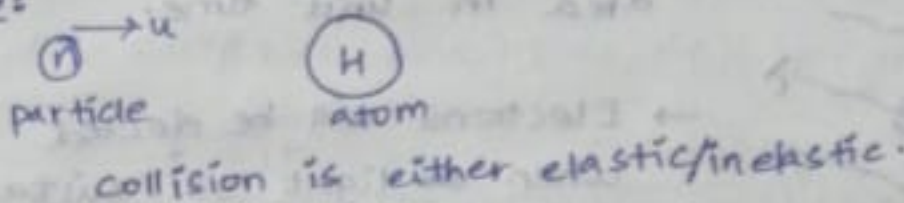 → u
n H
particle atom
collision is either elastic/inelastic.